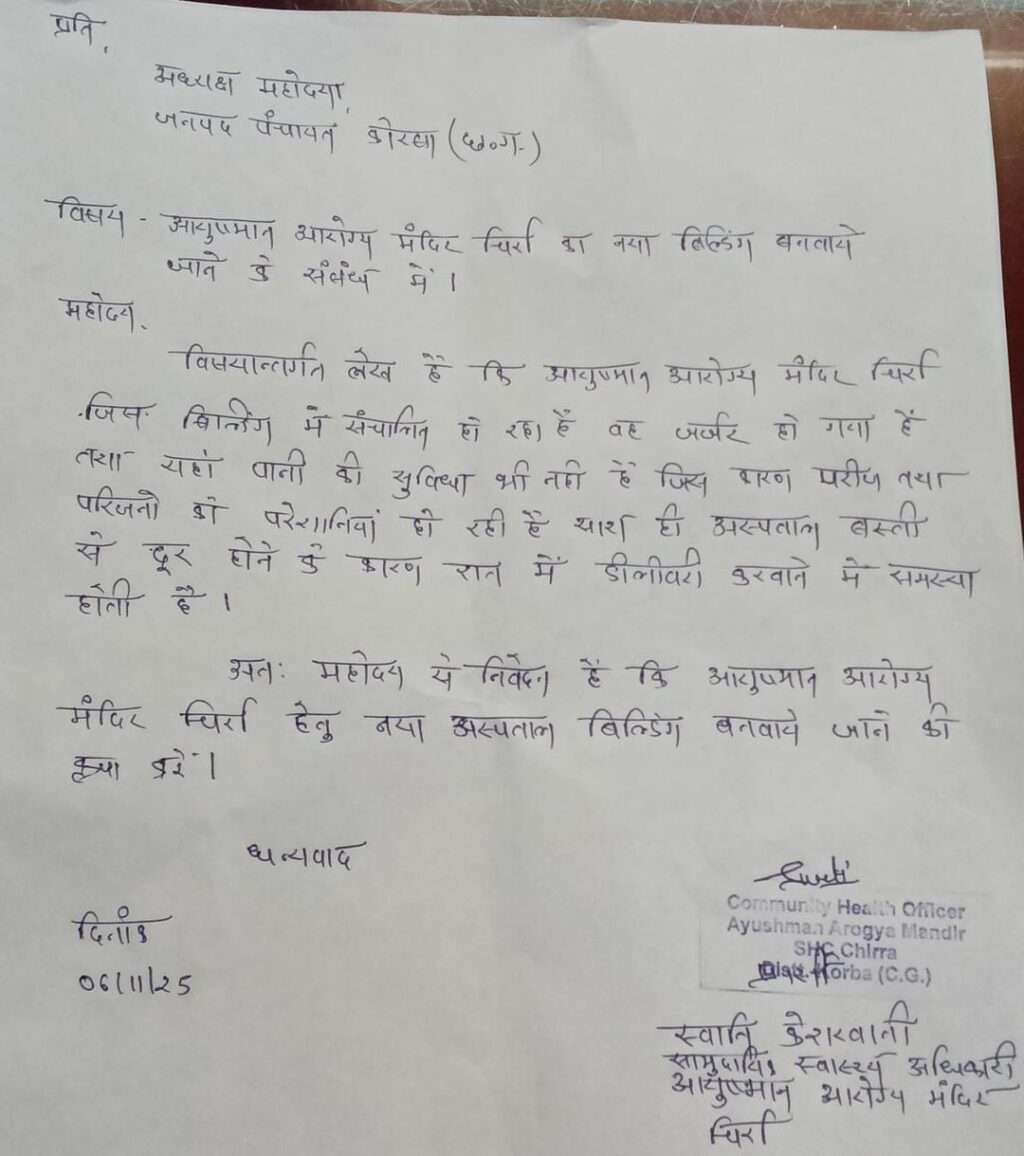 प्रति,
अध्यक्ष महोदया,
जनपद पंचायत कोरबा (छ०ग.)
विषय - आयुष्मान आरोग्य मंदिर चिर्रा का नया बिल्डिंग बनवाये
जाने के संबंध में ।
महोदय,
विषयान्तर्गत लेख है कि आयुष्मान आरोग्य मंदिर चिर्रा
जिस बिल्डिंग में संचालित हो रहा है वह जर्जर हो गया है
तथा यहां पानी की सुविधा भी नही है जिस कारण मरीज तथा
परिजनो को परेशानियां हो रही है साथ ही अस्पताल बस्ती
से दूर होने के कारण रात में डीलीवरी करवाने में समस्या
होती है ।
अतः महोदय से निवेदन है कि आयुष्मान आरोग्य
मंदिर चिर्रा हेतु नया अस्पताल बिल्डिंग बनवाये जाने की
कृपा करें ।
धन्यवाद
दिनांक
06/11/25
Swati
Community Health Officer
Ayushman Arogya Mandir
SHC Chirra
Dist. Korba (C.G.)
स्वाति केशरवानी
सामुदायिक स्वास्थ्य अधिकारी
आयुष्मान आरोग्य मंदिर
चिर्रा